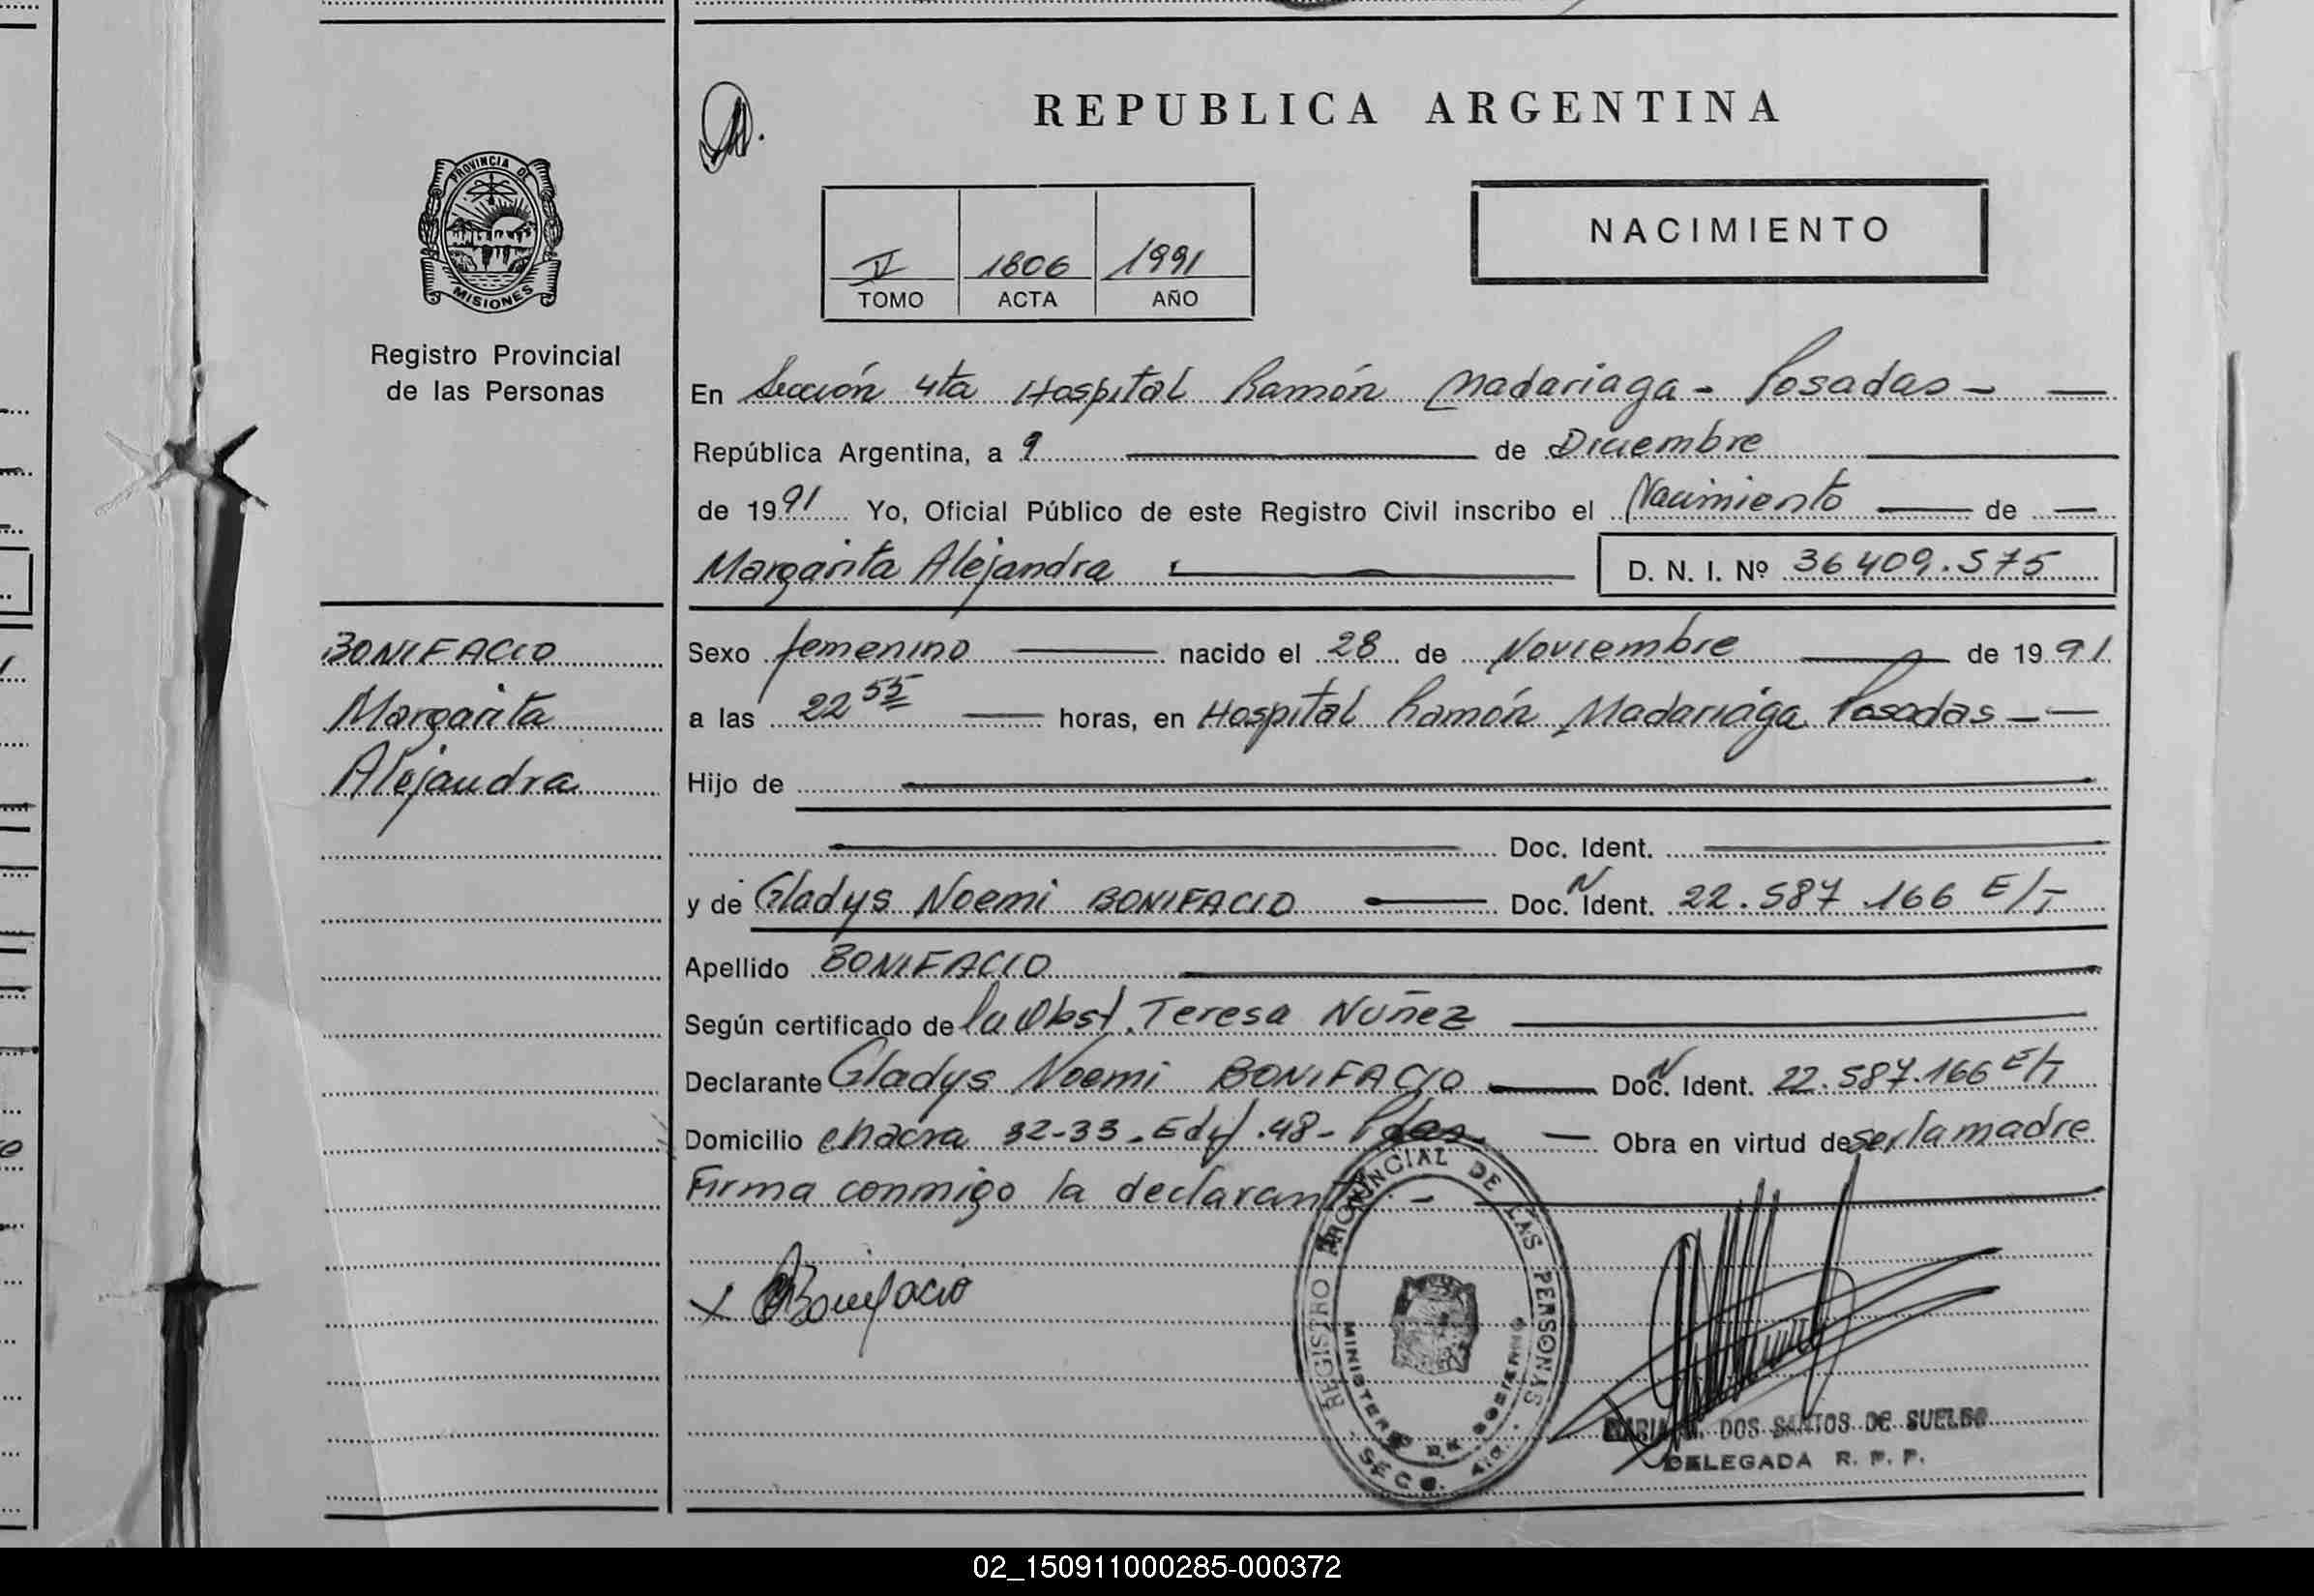 REPUBLICA ARGENTINA
PROVINCIA DE
MISIONES
Registro Provincial
de las Personas
NACIMIENTO
V 1806 1991
TOMO ACTA AÑO
En Sección 4ta Hospital Ramón Madariaga - Posadas -
República Argentina, a 9 de Diciembre
de 1991 Yo, Oficial Público de este Registro Civil inscribo el Nacimiento de
Margarita Alejandra D. N. I. Nº 36409.575
BONIFACIO
Margarita
Alejandra
Sexo femenino nacido el 28 de Noviembre de 1991
a las 22 55 horas, en Hospital Ramón Madariaga Posadas -
Hijo de
Doc. Ident.
y de Gladys Noemi BONIFACIO Doc. N Ident. 22.587.166 E/T
Apellido BONIFACIO
Según certificado de la Obst. Teresa Nuñez
Declarante Gladys Noemi BONIFACIO Doc. N Ident. 22.587.166 E/T
Domicilio chacra 32-33. Edif. 48 - Pdas. Obra en virtud de ser la madre
Firma conmigo la declarante. -
x Bonifacio
REGISTRO PROVINCIAL DE LAS PERSONAS
MINISTERIO DE GOBIERNO
SECC. 4ta.
DOS SANTOS DE SUELDO
DELEGADA R. P. P.
02_150911000285-000372